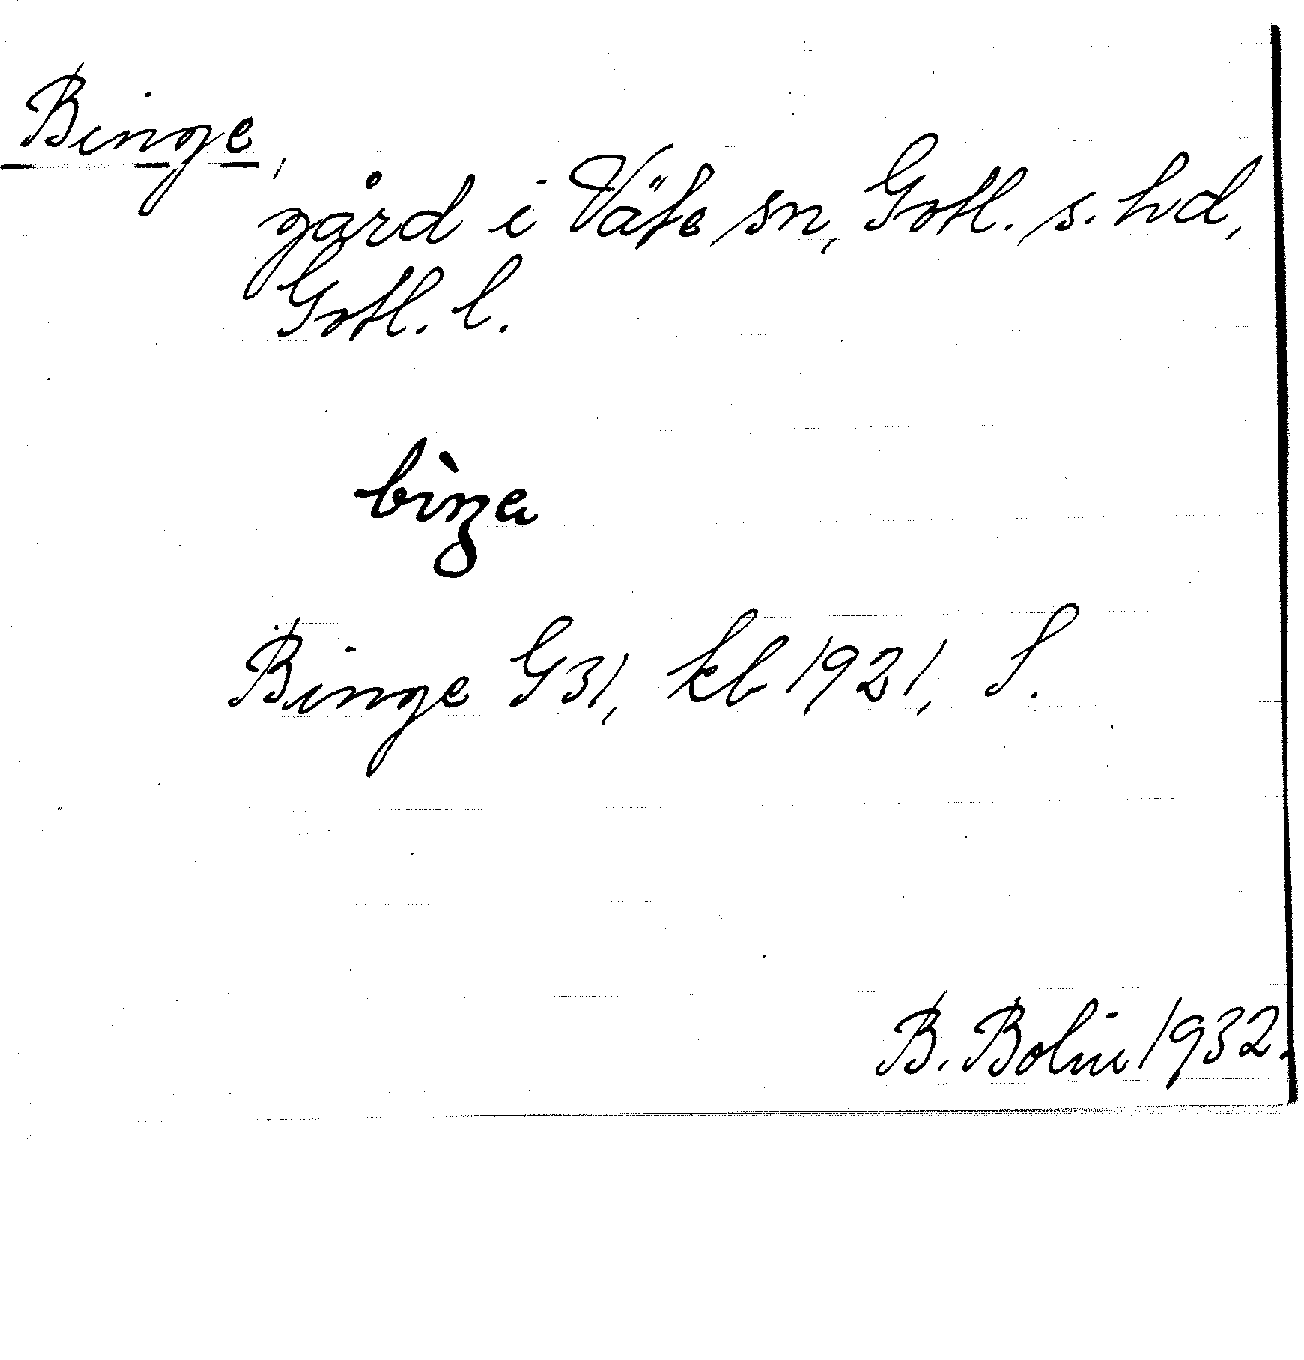 Binge,
gård i Väte sn, Gotl. s. hd,
Gotl. l.
Binge G31, kb 1921, S.
B. Bolin 1932.